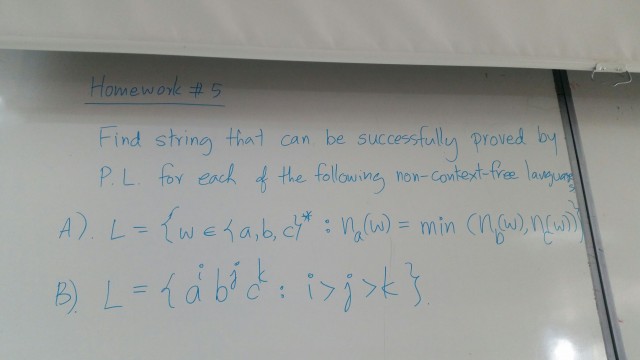 Homework # 5
Find string that can be successfully proved by
P.L. for each of the following non-context-free languages
A). L = {w ∈ {a,b,c}* : nₐ(w) = min (n_b(w), n_c(w))}
B) L = {aⁱ bʲ cᵏ : i > j > k}.